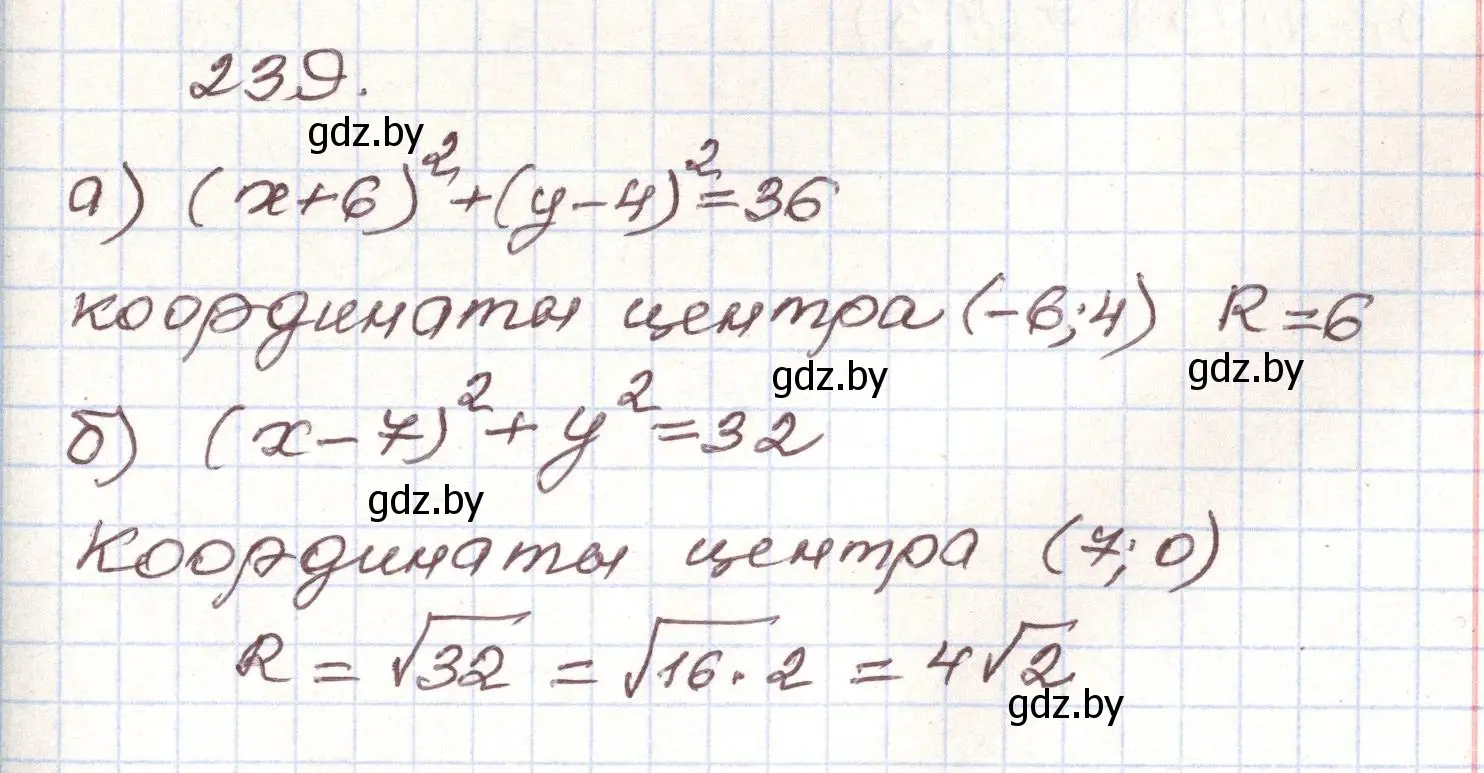 239.
gdz.by
а) (x+6)²+(y-4)²=36
координаты центра (-6;4) R=6
gdz.by gdz.by
б) (x-7)²+y²=32
gdz.by
Координаты центра (7;0)
R=√32=√16·2=4√2
gdz.by